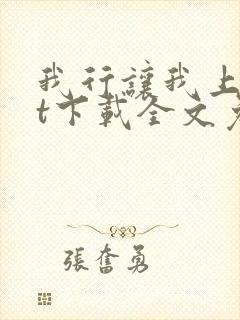 我行讓我上
t下載全文
張奮勇